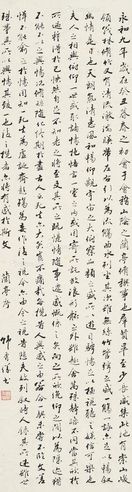 永和九年歲在癸丑暮春之初會于會稽山陰之蘭亭脩禊事也群賢畢至少長咸集此地有崇山峻
領茂林脩竹又有清流激湍映帶左右引以為流觴曲水列坐其次雖無絲竹管弦之盛一觴一詠亦足以暢叙
幽情是日也天朗氣清惠風和暢仰觀宇宙之大俯察品類之盛所以遊目騁懷足以極視聽之娛信可樂也
夫人之相與俯仰一世或取諸懷抱悟言一室之內或因寄所託放浪形骸之外雖趣舍萬殊靜躁
不同當其欣於所遇暫得於己快然自足不知老之將至及其所之既惓情隨事遷感慨係之矣向之所欣俛仰之間以為陳迹猶
不能不以之興懷況脩短隨化終期於盡古人云死生亦大矣豈不痛哉每攬昔人興感之由若合一契未嘗不臨文嗟
悼不能喻之於懷固知一死生為虛誕齊彭殤為妄作後之視今亦由今之視昔悲夫故列叙時人錄其所述雖世
殊事異所以興懷其致一也後之攬者亦將有感於斯文
蘭亭序